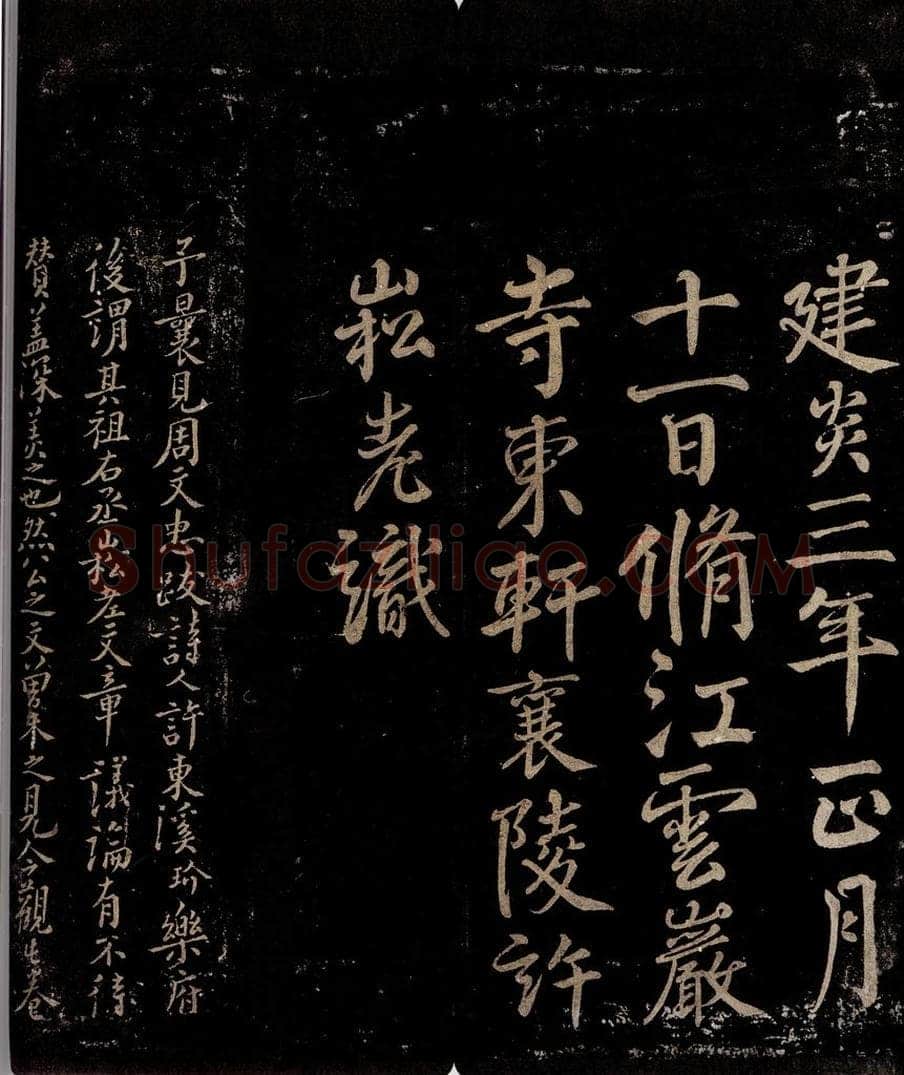 建炎三年正月
十一日脩江雲巖
寺東軒襄陵許
崧老識
予曩見周文忠跋詩人許東溪玠樂府
後謂其祖右丞崧老文章議論有不待
贊蓋深美之也然公之文曾未之見今觀此卷
Shufaziliao.COM